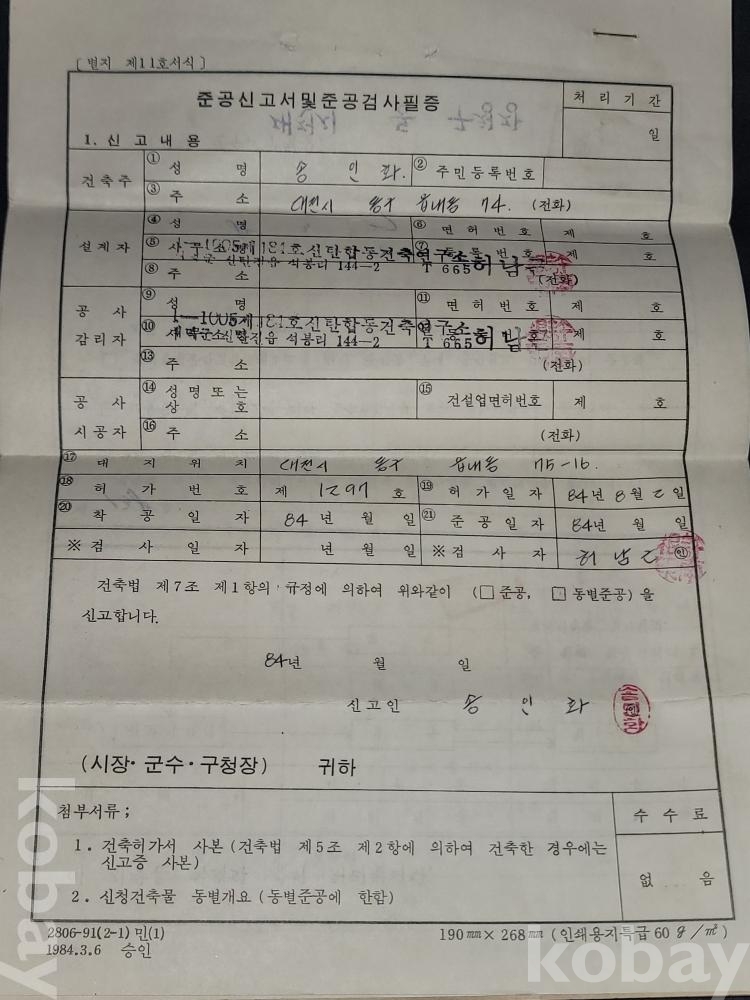 [ 별지 제11호서식 ]
준공신고서및준공검사필증
처 리 기 간
일
1. 신 고 내 용
건축주
① 성 명
송 인 화.
② 주민등록번호
③ 주 소
대전시 동구 읍내동 74. (전화)
설계자
④ 성 명
⑥ 면 허 번 호 제 호
⑤ 사무소명
1-1005제181호신탄합동건축연구소허남
⑦ 등 록 번 호 제 호
신탄진읍 석봉리 144-2
T 665
⑧ 주 소
(전화)
공 사
감리자
⑨ 성 명
⑪ 면 허 번 호 제 호
1-1005제181호신탄합동건축연구소허남
⑩ 제 호
대덕군 신탄진읍 석봉리 144-2
T 665
⑬ 주 소
(전화)
공 사
시공자
⑭ 성 명 또 는
상 호
⑮ 건설업면허번호 제 호
⑯ 주 소
(전화)
⑰ 대 지 위 치 대전시 동구 읍내동 75-16.
⑱ 허 가 번 호 제 1297 호 ⑲ 허 가 일 자 84년 8월 2일
⑳ 착 공 일 자 84년 월 일 ㉑ 준 공 일 자 84년 월 일
※ 검 사 일 자 년 월 일 ※ 검 사 자 허 남 ㊞
건축법 제7조 제1항의 규정에 의하여 위와같이 (□ 준공, □ 동별준공) 을
신고합니다.
84년 월 일
신고인 송 인 화 ㊞
(시장·군수·구청장) 귀하
첨부서류 ;
수 수 료
1. 건축허가서 사본 (건축법 제5조 제2항에 의하여 건축한 경우에는
신고증 사본)
없 음
2. 신청건축물 동별개요 (동별준공에 한함)
2806-91(2-1) 민(1)
1984.3.6 승인
190㎜× 268㎜ (인쇄용지특급 60 g/㎡)
kobay
kobay